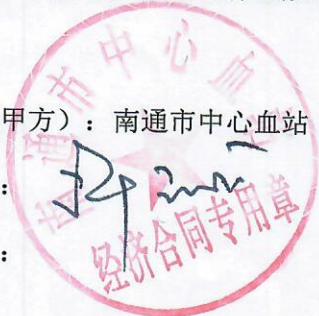 甲方）：南通市中心血站
：
：
南通市中心血站
经济合同专用章